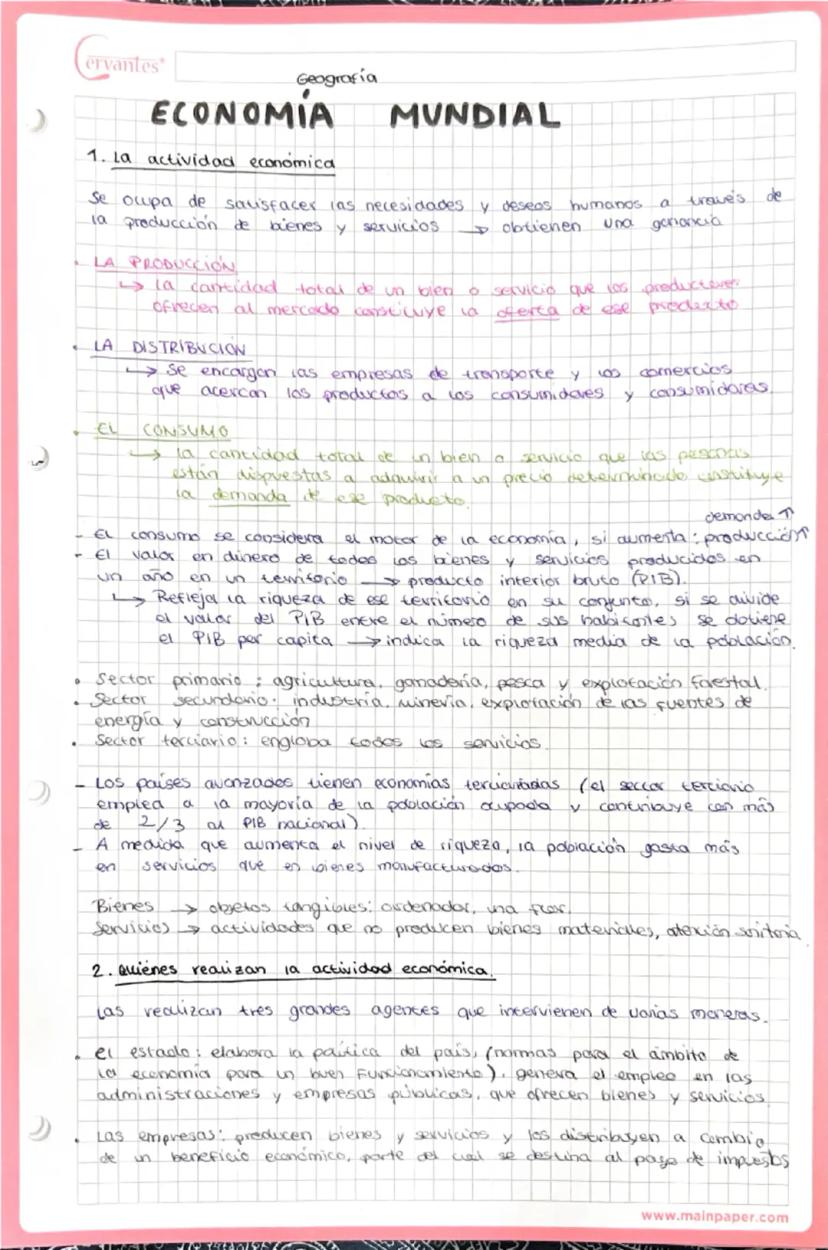 Cervantes®
Geografía
ECONOMÍA MUNDIAL
1. La actividad económica
Se ocupa de satisfacer las necesidades y deseos humanos a través de
la producción de bienes y servicios → obtienen una ganancia
• LA PRODUCCIÓN
↳ la cantidad total de un bien o servicio que los productores
ofrecen al mercado constituye la oferta de ese producto
• LA DISTRIBUCIÓN
↳ se encargan las empresas de transporte y los comercios
que acercan los productos a los consumidores y consumidoras.
• EL CONSUMO
↳ la cantidad total de un bien o servicio que las personas
están dispuestas a adquirir a un precio determinado constituye
la demanda de ese producto.
demanda ↑
- El consumo se considera el motor de la economía, si aumenta: producción↑
- El valor en dinero de todos los bienes y servicios producidos en
un año en un territorio → producto interior bruto (PIB).
↳ Refleja la riqueza de ese territorio en su conjunto, si se divide
el valor del PIB entre el número de sus habitantes se obtiene
el PIB per capita → indica la riqueza media de la población.
• Sector primario: agricultura, ganadería, pesca y explotación forestal.
• Sector secundario: industria, minería, explotación de las fuentes de
energía y construcción
• Sector terciario: engloba todos los servicios.
- Los países avanzados tienen economías terciarizadas (el sector terciario
emplea a la mayoría de la población ocupada y contribuye con más
de 2/3 al PIB nacional).
- A medida que aumenta el nivel de riqueza, la población gasta más
en servicios que en bienes manufacturados.
Bienes → objetos tangibles: ordenador, una flor.
Servicios → actividades que no producen bienes materiales, atención sanitaria
2. Quiénes realizan la actividad económica.
Las realizan tres grandes agentes que intervienen de varias maneras.
• el estado: elabora la política del país, (normas para el ámbito de
la economía para un buen funcionamiento), genera el empleo en las
administraciones y empresas públicas, que ofrecen bienes y servicios.
• Las empresas: producen bienes y servicios y los distribuyen a cambio
de un beneficio económico, parte del cual se destina al pago de impuestos
www.mainpaper.com